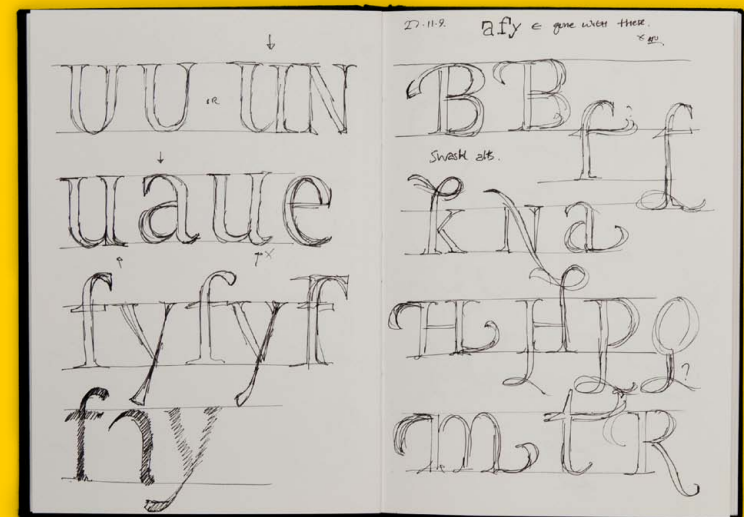 U U or U U N
u a u e
f y f y F
f n y
27.11.9.
afy ← gone with these.
B B f f
Swash alts.
k N a
H H P Q ?
m t R